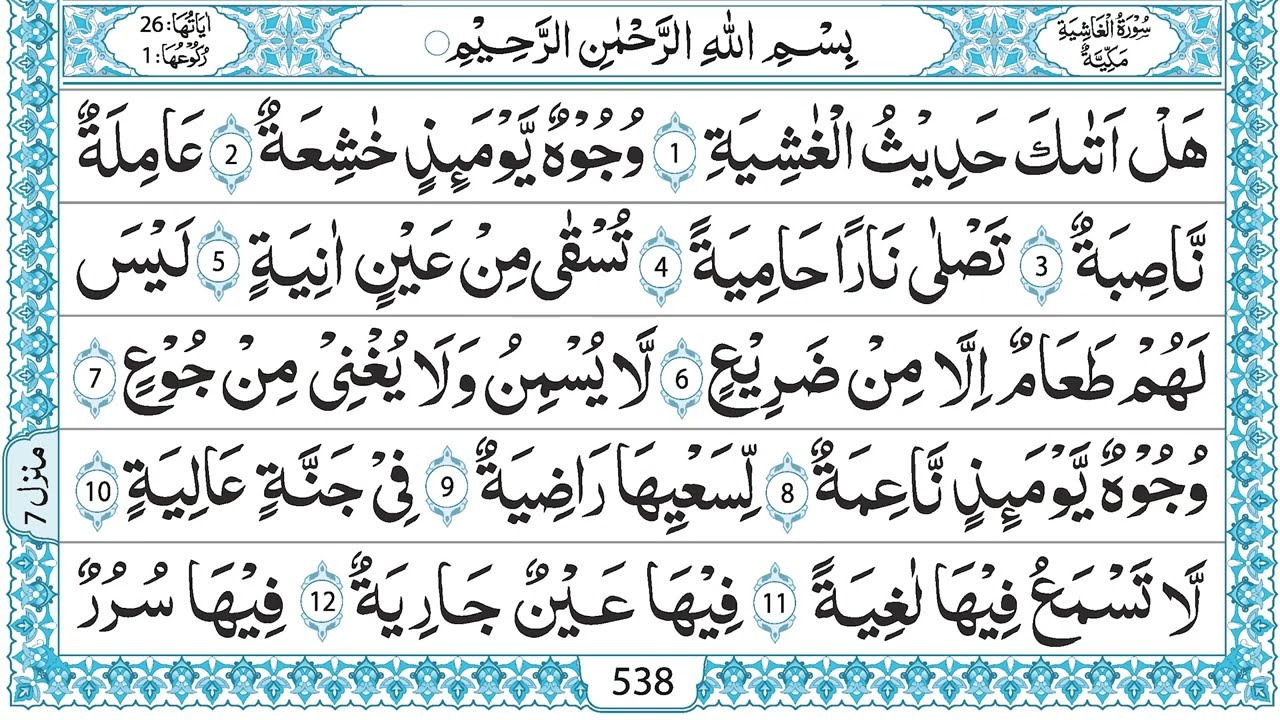 سُوْرَةُ الْغَاشِيَةِ
مَكِّيَّةٌ
بِسْمِ اللهِ الرَّحْمٰنِ الرَّحِيْمِ
اٰيَاتُهَا: 26
رُكُوْعُهَا: 1
هَلْ اَتٰىكَ حَدِيْثُ الْغٰشِيَةِ 1 وُجُوْهٌ يَّوْمَئِذٍ خٰشِعَةٌ 2 عَامِلَةٌ
نَّاصِبَةٌ 3 تَصْلٰى نَارًا حَامِيَةً 4 تُسْقٰى مِنْ عَيْنٍ اٰنِيَةٍ 5 لَيْسَ
لَهُمْ طَعَامٌ اِلَّا مِنْ ضَرِيْعٍ 6 لَّا يُسْمِنُ وَلَا يُغْنِيْ مِنْ جُوْعٍ 7
وُجُوْهٌ يَّوْمَئِذٍ نَّاعِمَةٌ 8 لِّسَعْيِهَا رَاضِيَةٌ 9 فِيْ جَنَّةٍ عَالِيَةٍ 10
لَّا تَسْمَعُ فِيْهَا لٰغِيَةً 11 فِيْهَا عَيْنٌ جَارِيَةٌ 12 فِيْهَا سُرُرٌ
منزل 7
538